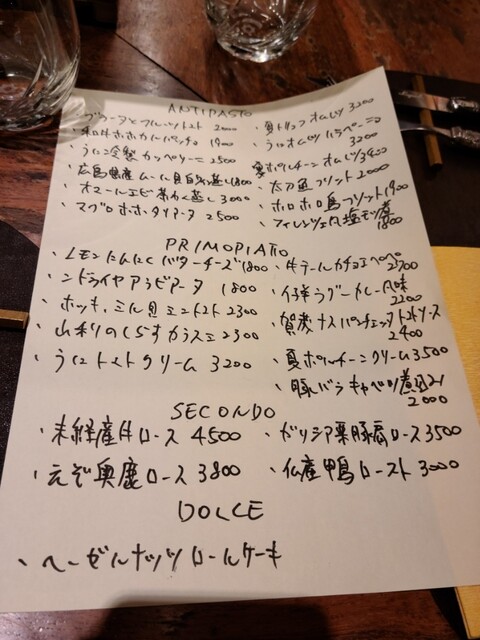 ANTIPASTO
・ブラータとフルーツトマト 2000
・和牛ホホカルパッチョ 1900
・うに冷製カッペリーニ 2500
・広島県産ムール貝白ワイン蒸し 1800
・オマールエビ 蒸し 3000
・マグロホホタリアータ 2500
・夏トリュフ オムレツ 3200
・うにオムレツ 3200
夏ポルチーニ オムレツ 3400
・太刀魚フリット 2000
・ホロホロ鳥フリット 1900
・フィレンツェ風塩モツ煮 1800
PRIMOPIATTO
・レモンにんにくバターチーズ 1800
・ンドゥイヤアラビアータ 1800
・ホッキ、ミル貝 トマト 2300
・しらすカラスミ 2300
・うにトマトクリーム 3200
・牛テールカチョエペペ 2700
・仔羊ラグーカレー風味 2200
・賀茂ナスパンチェッタトマトソース 2400
・夏ポルチーニクリーム 3500
・豚バラキャベツ煮込み 2000
SECONDO
・未経産牛ロース 4500
・えぞ奥鹿ロース 3800
・ガリシア栗豚肩ロース 3500
・仏産鴨ロースト 3000
DOLCE
・ヘーゼルナッツロールケーキ